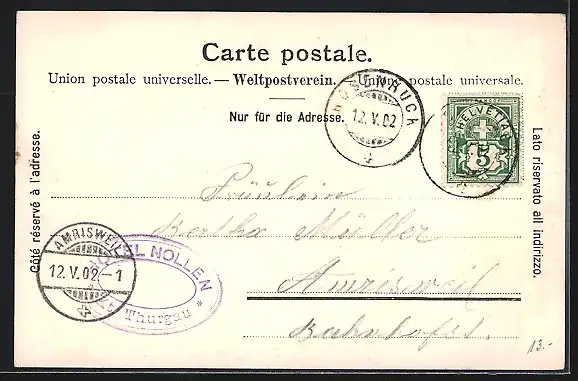 Carte postale.
Union postale universelle. — Weltpostverein. — Unione postale universale.
Nur für die Adresse.
HOSENRUCK
12.V.02
HELVETIA
5
Côté réservé à l'adresse.
Lato riservato all indirizzo.
Fräulein
Bertha Müller
Amrisweil
Bahnhofst.
AMRISWEIL
12.V.02.-1
HOTEL NOLLEN
Thurgau *
13.-